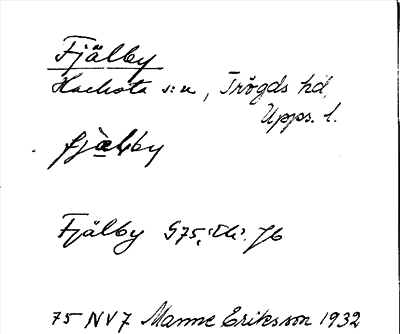 Fjälby
Hacksta s:n, Trögds hd,
Upps. l.
fjælby
Fjälby G75,
75 NV7 Manne Eriksson 1932